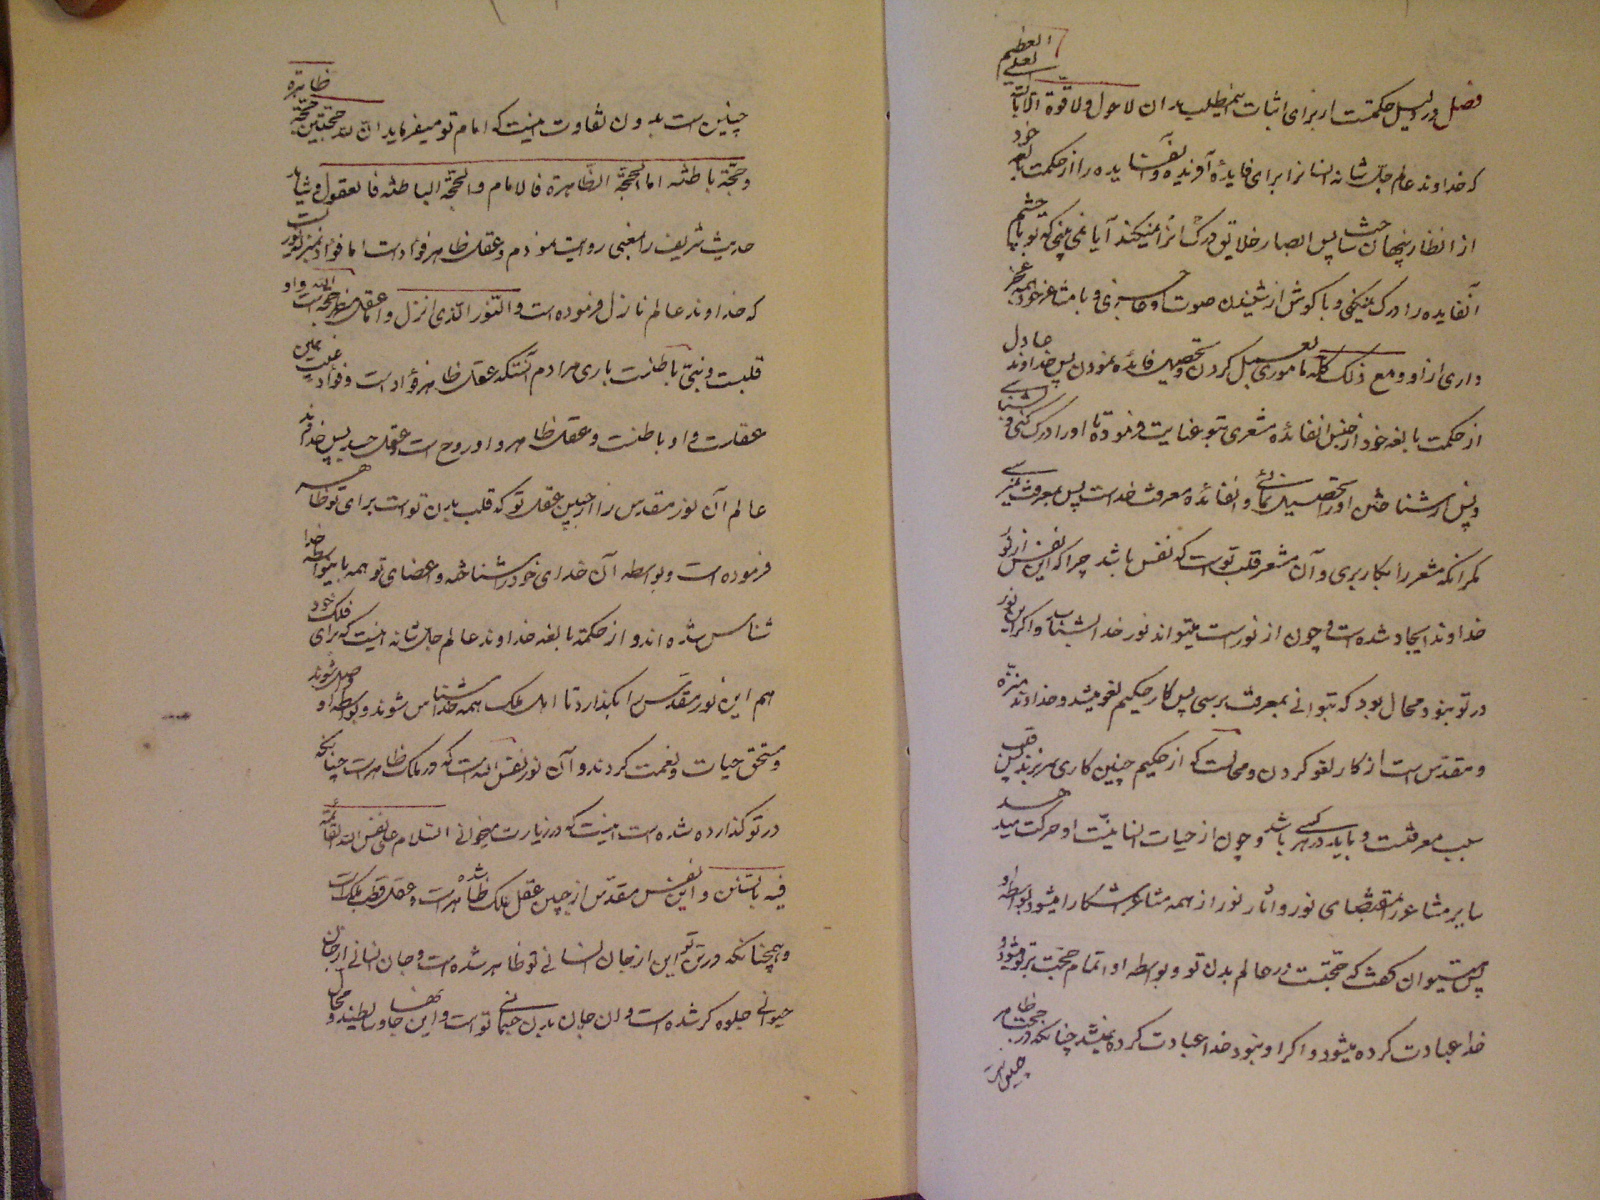 فصل در دلیل حکمتست از برای اثبات همین مطلب بدان لا حول و لا قوة الا بالله العلی العظیم
که خداوند عالم جل شانه انسانرا برای فایده آفریده و آنفایده را از حکمت بالغه خود
از انظار پنهان ساخت پس ابصار خلایق درک آنرا نمیکند آیا نمی بینی که تو با چشم
آنفایده را درک نمیکنی و با گوش از شنیدن صوت او عاجزی و با مشاعر خود همه عجز
داری از او و مع ذلک کله ماموری بعمل کردن و تحصیل فائده نمودن پس خداوند عادل
از حکمت بالغه خود از جنس آنفائده مشعری بتو عنایت فرموده تا او را درک کنی و بشناسی
و پس از شناختن او را تحصیل نمائی و آنفائده معرفت خداست پس بمعرفت نمیرسی
مگر آنکه مشعر را بکار بری و آن مشعر قلب تو است که نفس باشد چرا که این نفس از نور
خداوند ایجاد شده است و چون از نور است میتواند نور خدا را بشناسد و اگر این نور
در تو نبود محال بود که بتوانی بمعرفت برسی پس کار حکیم لغو میشد و خداوند منزه
و مقدس است از کار لغو کردن و محالست که از حکیم چنین کاری سر بزند پس قلب
سبب معرفتست و باید در هر کسی باشد و چون از حیات انسانیت او حرکت میدهد
سایر مشاعر را مقتضای نور و آثار نور از همه مشاعر آشکارا میشود بواسطه او
پس میتوان گفت که حجتست در عالم بدن تو و بواسطه او اتمام حجت بر تو میشود و
خدا عبادت کرده میشود و اگر او نبود خدا عبادت کرده نمیشد چنانکه در حجت ظاهر
چنین است
چنین است بدون تفاوت اینست که امام تو میفرماید ان لله حجتین حجة ظاهرة
و حجة باطنة اما الحجة الظاهرة فالامام و الحجة الباطنة فالعقول و شاید
حدیث شریف را بمعنی روایت نمودم و عقل ظاهر فؤاد است اما فؤاد بمنزله نوریست
که خداوند عالم نازل فرموده است و النور الذی انزل و اما عقل مظهر حجة الله است و او
قلبست و نبی باطنست باری مرادم آنستکه عقل ظاهر فؤاد است و فؤاد غیب همین
عقلست و او باطنست و عقل ظاهر و او روح است و عقل جسد پس خداوند
عالم آن نور مقدس را از جبین عقل تو که قلب بدن تو است برای تو ظاهر
فرموده است و بواسطه آن خدای خود را شناخته و اعضای تو همه باینواسطه خدا
شناس شده اند و از حکمة بالغه خداوند عالم جل شانه اینست که برای فلک خود
هم این نور مقدس را بگذارد تا اهل ملک همه خداشناس شوند و بواسطه او وصل شوند
و مستحق حیات و نعمت گردند و آن نور نفس الله است که در ملک ظاهر است چنانکه
در تو گذارده شده است اینست که در زیارت میخوانی السلام علی نفس الله القائمة
فیه بالسنن و این نفس مقدس از جبین عقل ملک ظاهر شده است و عقل قطب ملک است
و همچنانکه در تو این از جان انسانی تو ظاهر شده است و جان انسانی از جان
حیوانی جلوه گر شده است و ان جان بدن جسمانی تو است و این جاها لطیفند و محال